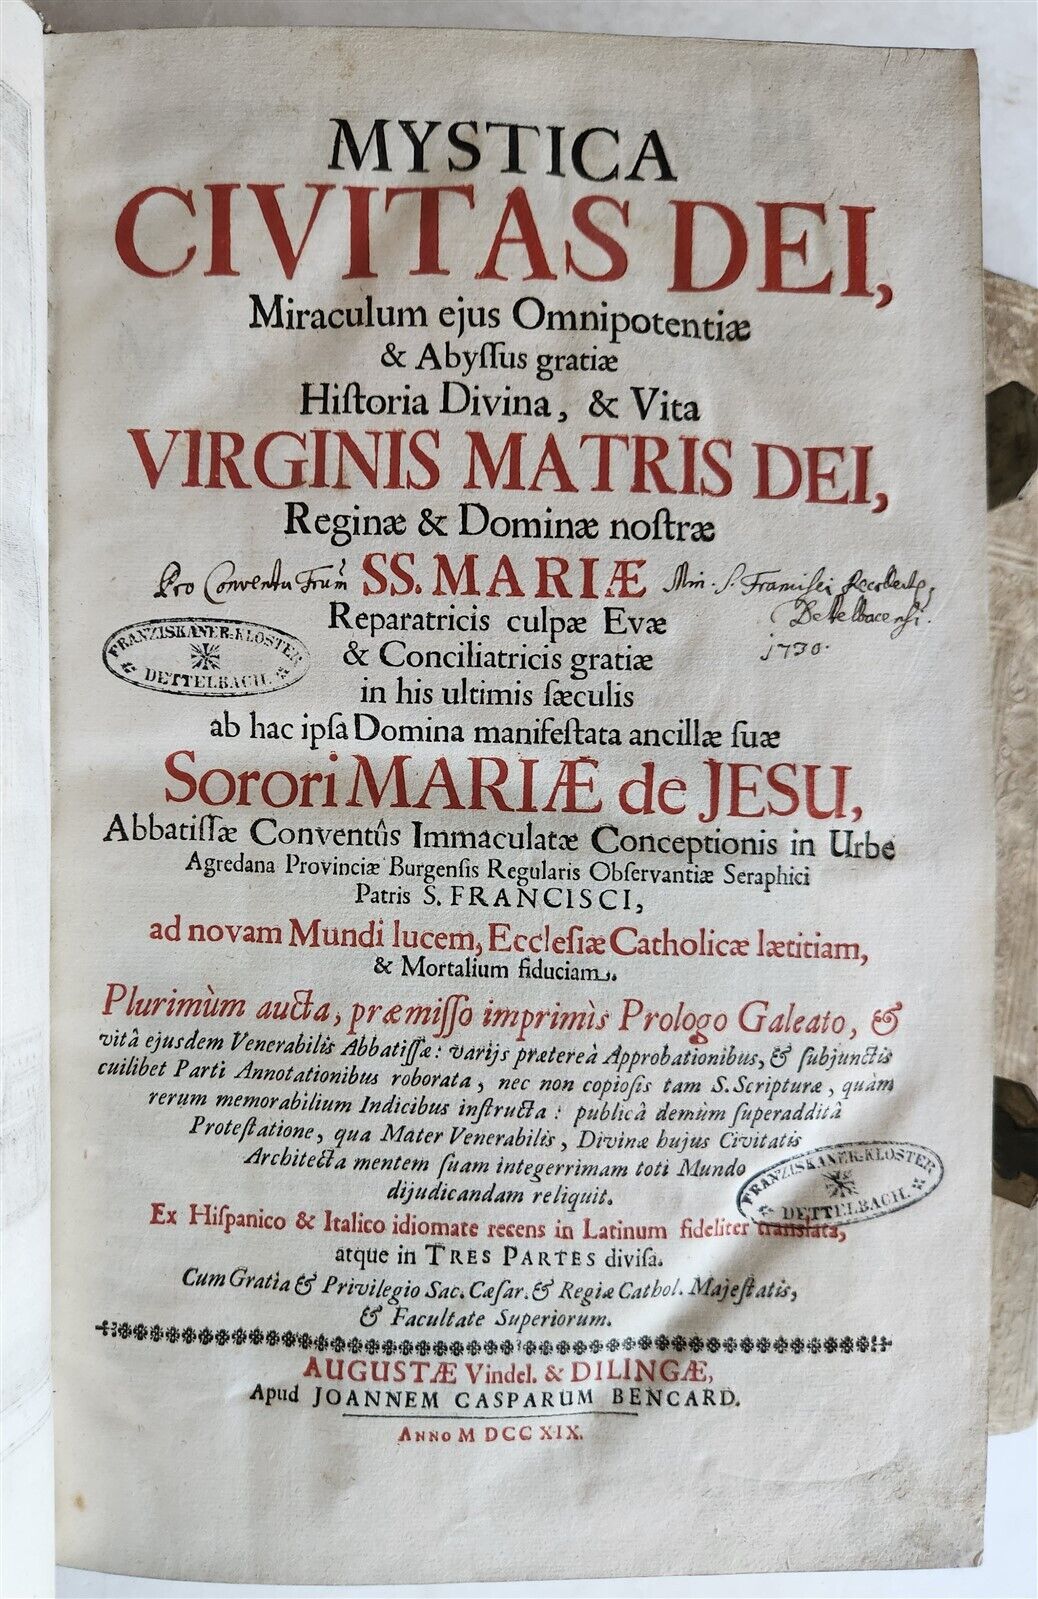 MYSTICA
CIVITAS DEI,
Miraculum ejus Omnipotentiæ
& Abyſſus gratiæ
Hiſtoria Divina, & Vita
VIRGINIS MATRIS DEI,
Reginæ & Dominæ noſtræ
Pro Conventu Frum SS. MARIÆ Min. S. Francisci
Dettelbacensi.
Reparatricis culpæ Evæ
1730.
FRANZISKANER-KLOSTER
DETTELBACH.
& Conciliatricis gratiæ
in his ultimis ſæculis
ab hac ipſa Domina manifeſtata ancillæ ſuæ
Sorori MARIÆ de JESU,
Abbatiſſæ Conventûs Immaculatæ Conceptionis in Urbe
Agredana Provinciæ Burgenſis Regularis Obſervantiæ Seraphici
Patris S. FRANCISCI,
ad novam Mundi lucem, Eccleſiæ Catholicæ lætitiam,
& Mortalium fiduciam.
Plurimùm aucta, præmiſſo imprimìs Prologo Galeato, &
vitâ ejusdem Venerabilis Abbatiſſæ: varijs prætereà Approbationibus, & ſubjunctis
cuilibet Parti Annotationibus roborata, nec non copioſis tam S. Scripturæ, quàm
rerum memorabilium Indicibus inſtructa: publicâ demùm ſuperadditâ
Proteſtatione, qua Mater Venerabilis, Divinæ hujus Civitatis
Architecta mentem ſuam integerrimam toti Mundo
dijudicandam reliquit.
FRANZISKANER-KLOSTER
DETTELBACH.
Ex Hiſpanico & Italico idiomate recens in Latinum fideliter translata,
atque in TRES PARTES diviſa.
Cum Gratia & Privilegio Sac. Cæſar. & Regiæ Cathol. Majeſtatis,
& Facultate Superiorum.
AUGUSTÆ Vindel. & DILINGÆ,
Apud JOANNEM CASPARUM BENCARD.
ANNO M DCC XIX.